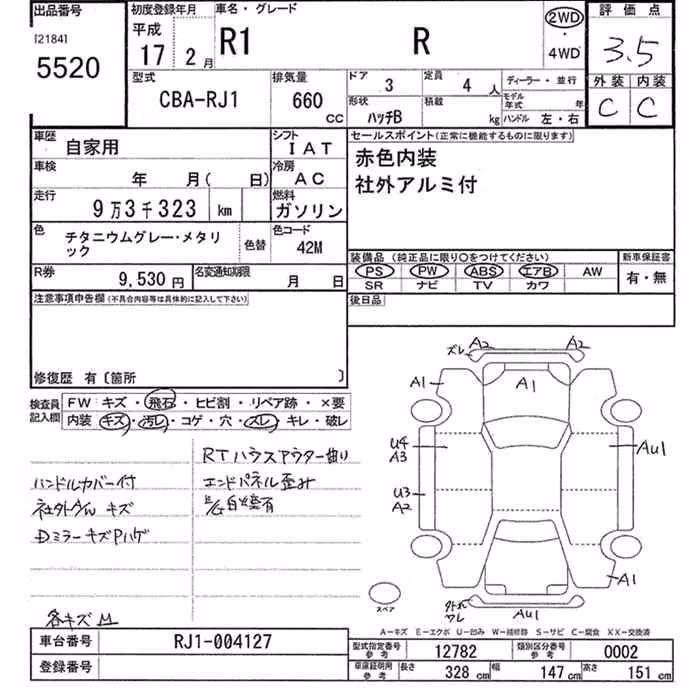 出品番号
[2184]
5520
初度登録年月
平成
17 2月
車名・グレード
R1 R
2WD
・
4WD
評価点
3.5
外装 内装
C C
型式
CBA-RJ1
排気量
660
CC
ドア 3
定員 4 人
形状 ハッチB
積載 kg
ディーラー・並行
モデル年式 年
ハンドル 左・右
車歴 自家用
シフト IAT
車検 年 月( 日)
冷房 AC
走行 9万3千323 km
燃料 ガソリン
色 チタニウムグレー・メタリ
ック
色替
色コード 42M
R券 9,530円
名変通知期限 月 日
セールスポイント(正常に機能するものに限ります)
赤色内装
社外アルミ付
装備品(純正品に限り○をつけてください)
新車保証書
PS PW ABS エアB AW
SR ナビ TV カワ
有・無
後日品
注意事項申告欄(不具合内容等は具体的に記入して下さい)
修復歴 有〔箇所 〕
検査員
記入欄
FW キズ・飛石・ヒビ割・リペア跡・×要
内装 キズ・汚レ・コゲ・穴・スレ・キレ・破レ
RTハウスアウター曲り
ハンドルカバー付
エンドパネル歪み
社外AW キズ
Dミラーキズ Pハゲ
各キズ
ズレ A2 A2
A1 A1
U4
A3
AU1
U3
A2
A1
外れ
ワレ
AU1
スペア
A-キズ E-エクボ U-凹み W-補修跡 S-サビ C-腐食 XX-交換済
車台番号 RJ1-004127
登録番号
型式指定番号
参考
12782
類別区分番号
参考
0002
車庫証明用
参考
長さ 328 cm
幅 147 cm
高さ 151 cm